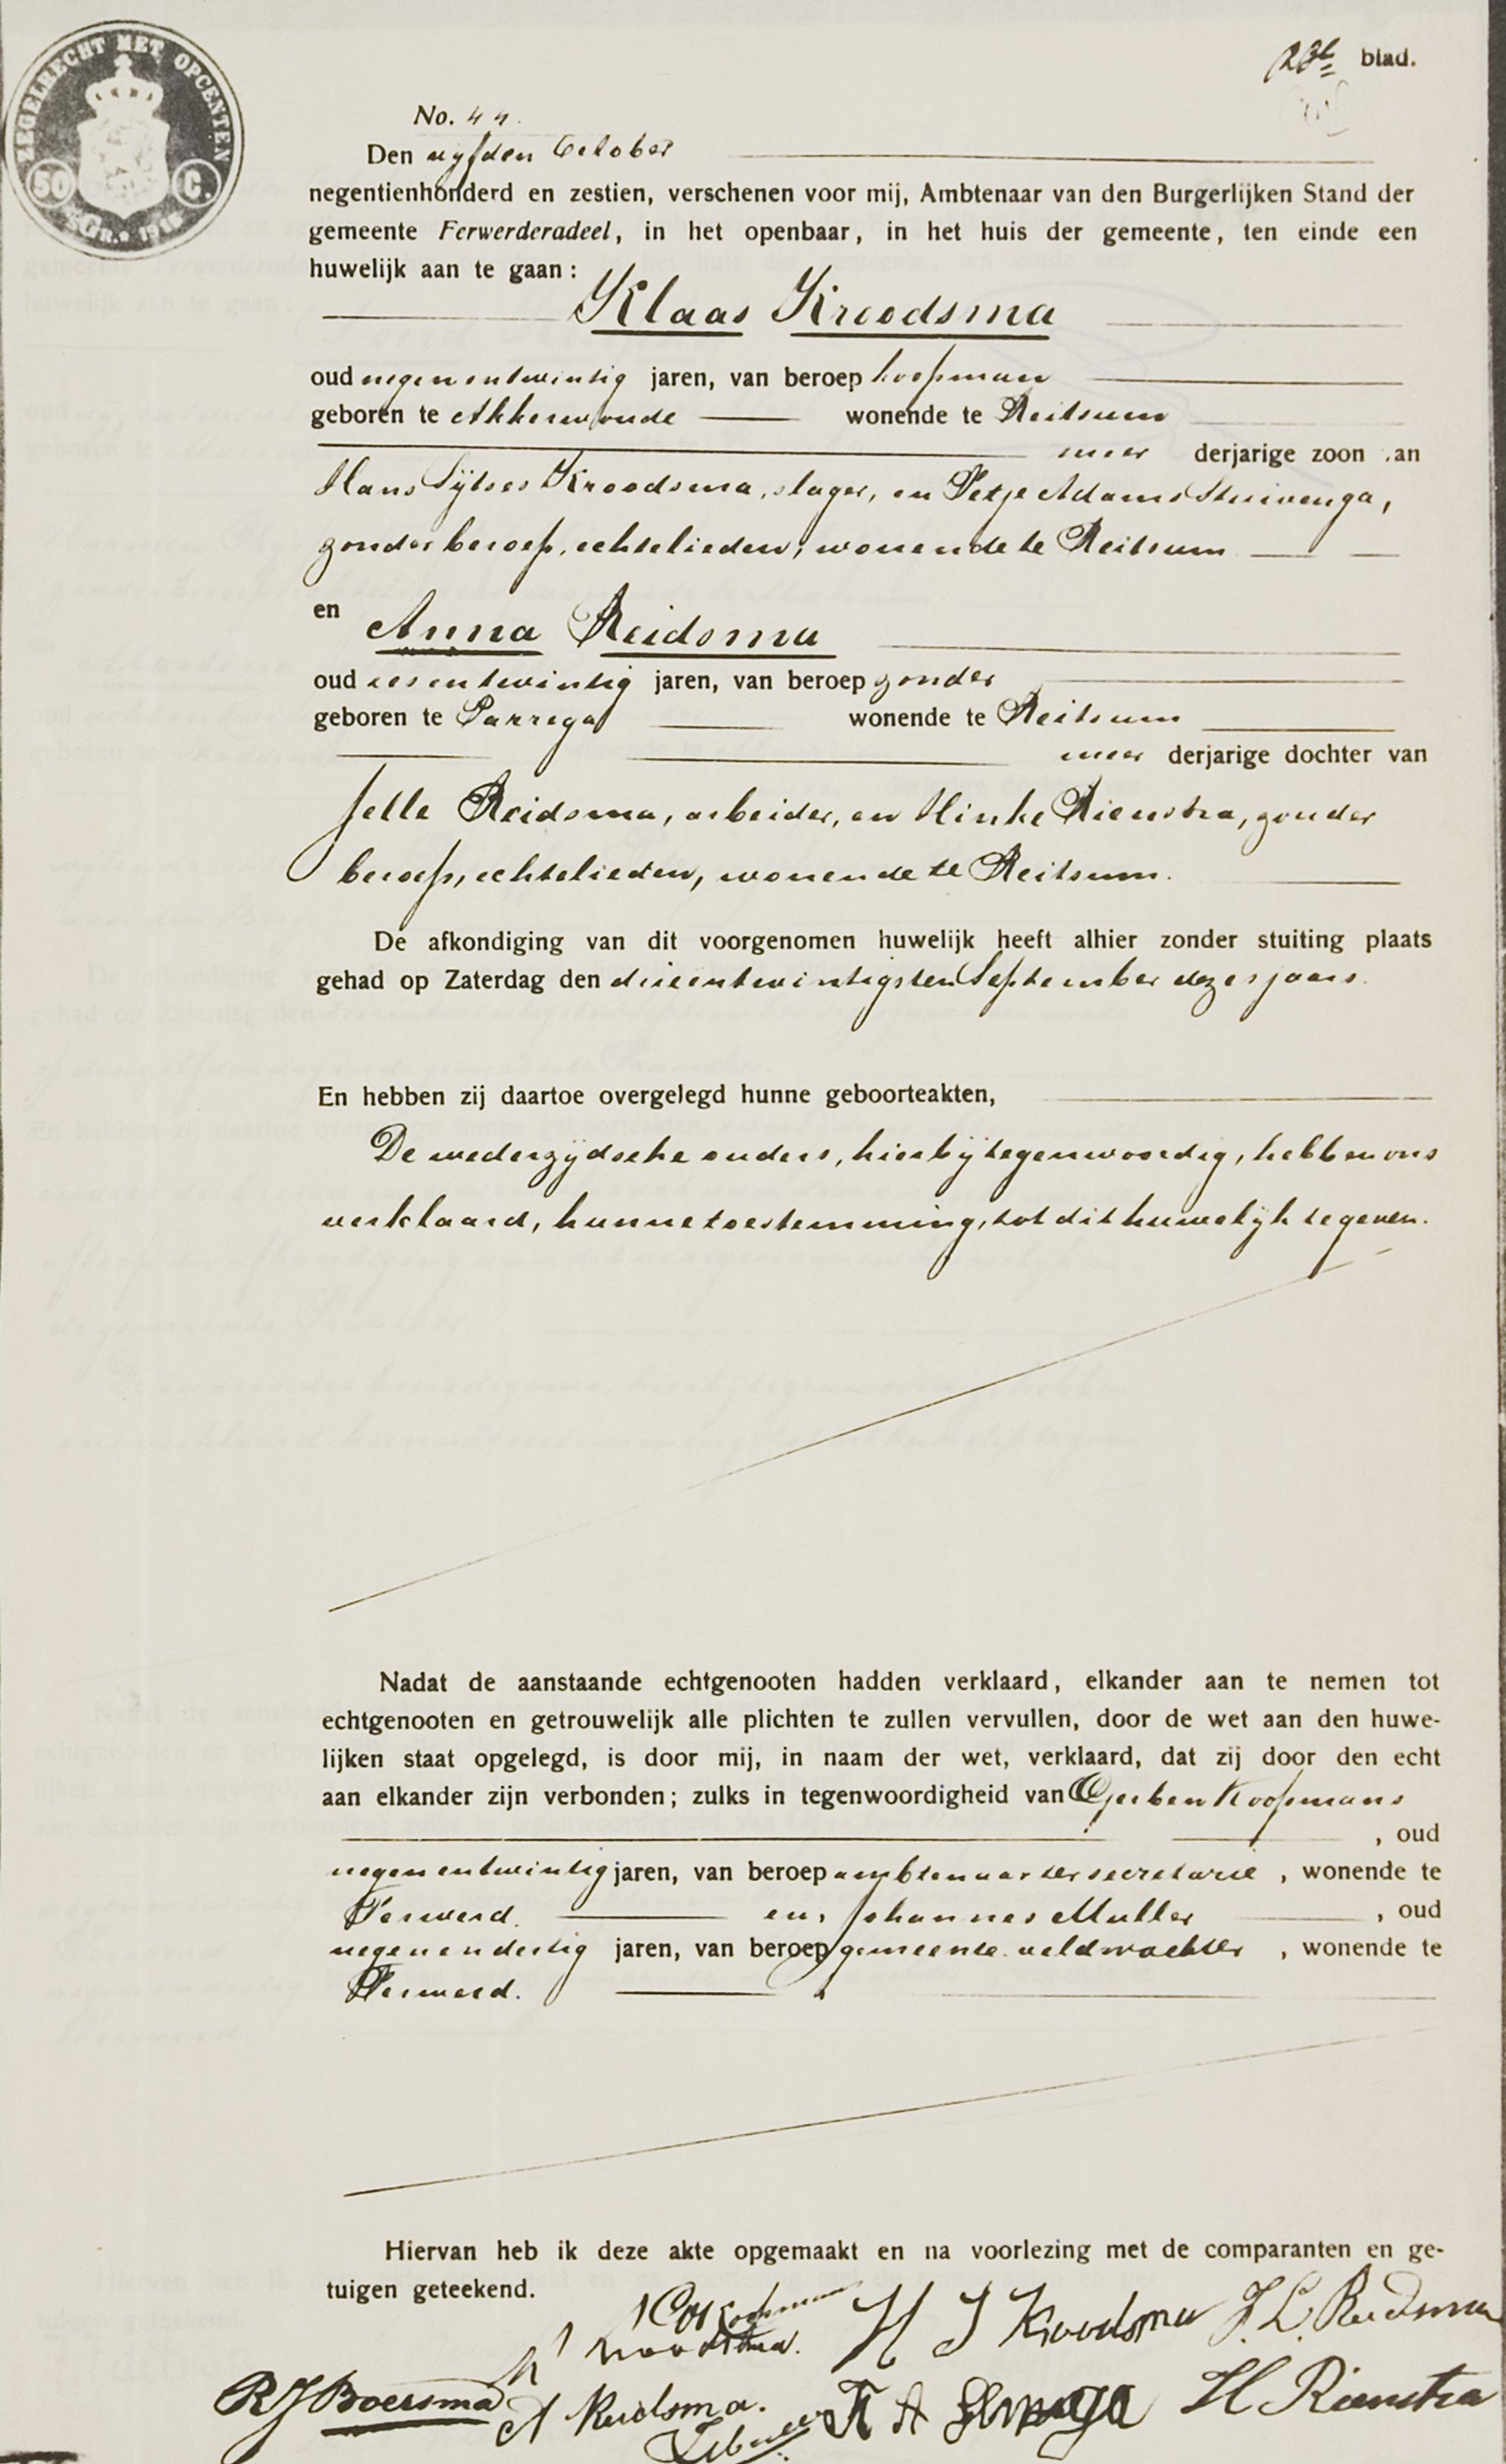 ZEGELRECHT MET OPCENTEN
50 C.
23e blad.
No. 44.
Den vijfden October
negentienhonderd en zestien, verschenen voor mij, Ambtenaar van den Burgerlijken Stand der
gemeente Ferwerderadeel, in het openbaar, in het huis der gemeente, ten einde een
huwelijk aan te gaan:
Klaas Kroodsma
oud negenentwintig jaren, van beroep koopman
geboren te Akkerwoude wonende te Reitsum
meer derjarige zoon van
Hans Sijtses Kroodsma, slager, en Tetje Adams Stuivenga,
zonder beroep, echtelieden, wonende te Reitsum
en Anna Reidsma
oud zesentwintig jaren, van beroep zonder
geboren te Parrega wonende te Reitsum
meer derjarige dochter van
Jelle Reidsma, arbeider, en Hinke Rienstra, zonder
beroep, echtelieden, wonende te Reitsum.
De afkondiging van dit voorgenomen huwelijk heeft alhier zonder stuiting plaats
gehad op Zaterdag den drieentwintigsten September dezes jaars.
En hebben zij daartoe overgelegd hunne geboorteakten,
De wederzijdsche ouders, hierbij tegenwoordig, hebben ons
verklaard, hunne toestemming, tot dit huwelijk te geven.
Nadat de aanstaande echtgenooten hadden verklaard, elkander aan te nemen tot
echtgenooten en getrouwelijk alle plichten te zullen vervullen, door de wet aan den huwe-
lijken staat opgelegd, is door mij, in naam der wet, verklaard, dat zij door den echt
aan elkander zijn verbonden; zulks in tegenwoordigheid van Gerben Koopmans
, oud
negenentwintig jaren, van beroep ambtenaar ter secretarie, wonende te
Ferwerd. en, Johannes Muller, oud
negenendertig jaren, van beroep gemeente veldwachter, wonende te
Ferwerd.
Hiervan heb ik deze akte opgemaakt en na voorlezing met de comparanten en ge-
tuigen geteekend.
K Kroodsma. H S Kroodsma J. L. Reidsma
R J Boersma A Reidsma. T A H Rienstra